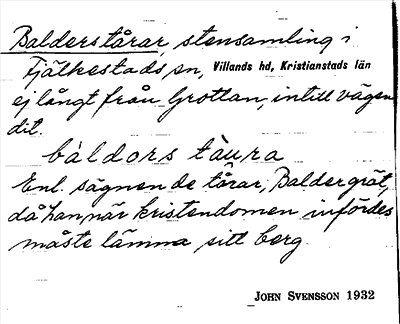 Balders tårar, stensamling i
Fjälkestads sn, Villands hd, Kristianstads län
ej långt från Grottan, intill vägen
dit.
bàldors tàura
Enl. sägnen de tårar, Balder grät,
då han, när kristendomen infördes
måste lämna sitt berg.
JOHN SVENSSON 1932